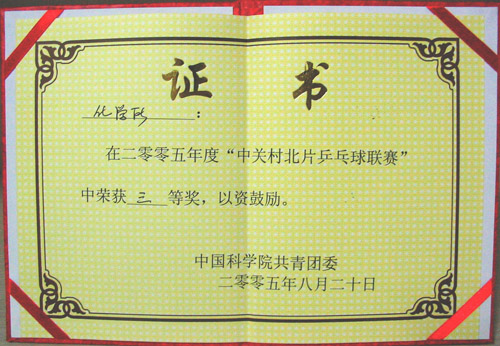 证书
化学所：
在二零零五年度“中关村北片乒乓球联赛”
中荣获三等奖，以资鼓励。
中国科学院共青团委
二零零五年八月二十日